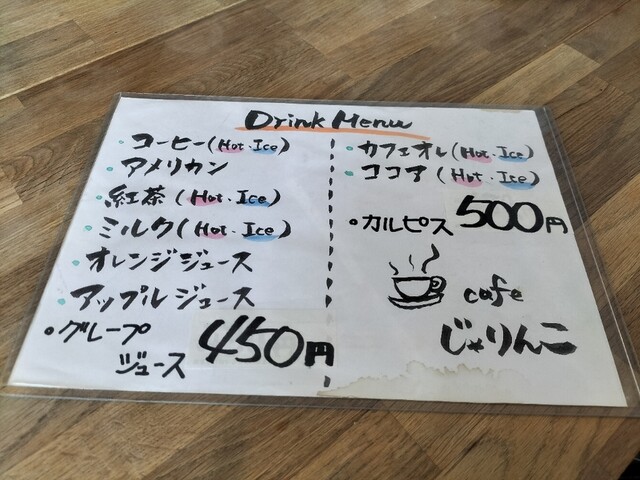 Drink Menu
・コーヒー(Hot・Ice)
・アメリカン
・紅茶(Hot・Ice)
・ミルク(Hot・Ice)
・オレンジジュース
・アップルジュース
・グレープ
ジュース 450円
・カフェオレ(Hot・Ice)
・ココア(Hot・Ice)
・カルピス 500円
cafe
じゃりんこ